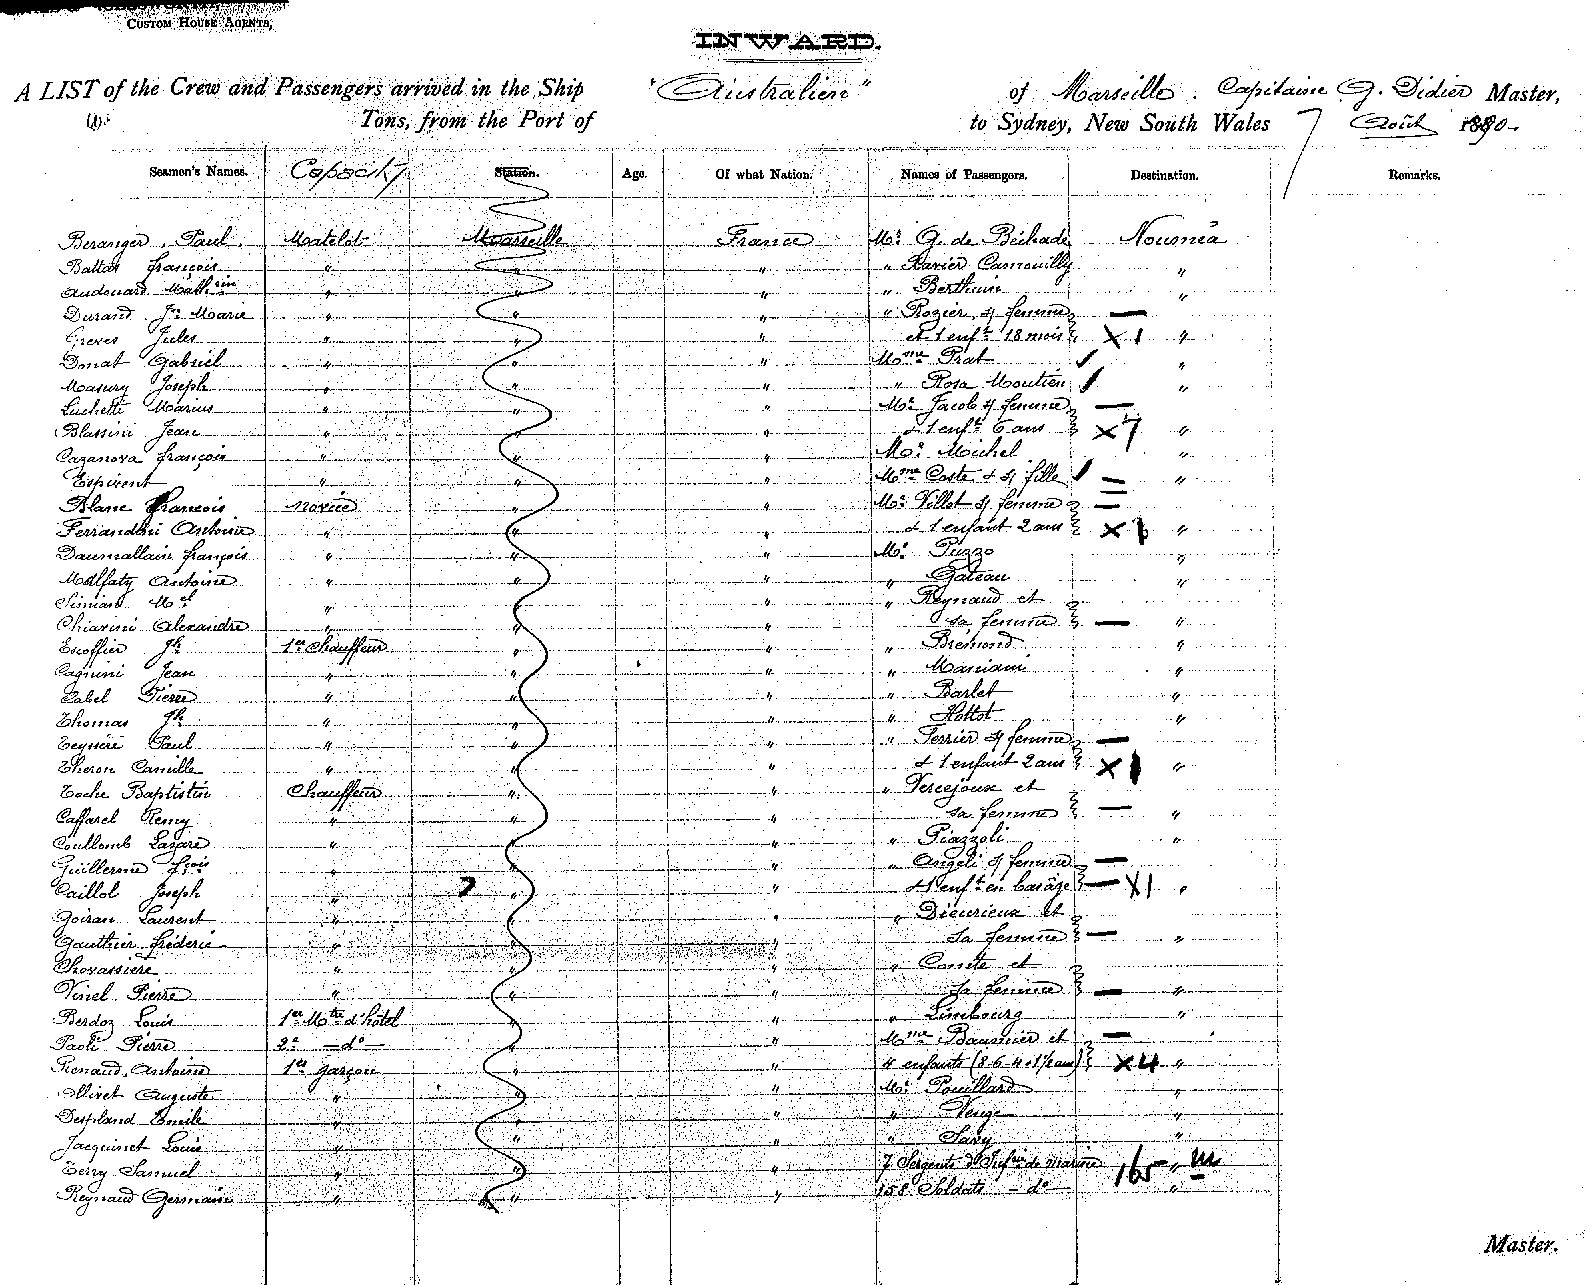 CUSTOM HOUSE AGENTS,
INWARD.
A LIST of the Crew and Passengers arrived in the Ship "Australien" of Marseille. Capitaine G. Didier Master,
Tons, from the Port of to Sydney, New South Wales 7 Août 1890
Seamen's Names. Capacity Station. Age. Of what Nation. Names of Passengers. Destination. Remarks.
Beranger Paul Matelot Marseille France Mr G. de Béchade Nouméa
François " " " " Xavier "
Audouard " " " " "
Durand Jn Marie " " " " Rozier, s/ femme
Greves Jules " " " et 1 enft 18 mois X1 "
Donat Gabriel " " " Mme Prat "
Masury Joseph " " " " Rosa Moutien "
Luchetti Marius " " " Mr Jacob s/ femme
Blassini Jean " " " + 1 enft 6 ans X7 "
Cazanova François " " " Mr Michel "
Espirent " " " Mme Coste + s/ fille "
Blanc François novice " " Mr Villot s/ femme
Ferrandini Antoine " " " + 1 enfant 2 ans X1 "
Daumallain François " " " Mr Puzzo "
Malfaty Antoine " " " " Gateau "
Simian " " " " Reynaud et
Chiarini Alexandre " " " sa femme "
Escoffier Jh 1er Chauffeur " " " Brémond "
Cagnini Jean " " " " "
Cabel Pierre " " " " Barlet "
Thomas Jh " " " " Hottot "
Teyssere Paul " " " " Perrier s/ femme
Theron Camille " " " + 1 enfant 2 ans X1 "
Toche Baptistin Chauffeur " " " Vercejoux et
Caffarel Remy " " " sa femme "
Coullomb Lazare " " " " Piazzoli "
Guillerme Frois " " " " Angeli s/ femme
Caillol Joseph " " " + 1 enft en bas âge X1 "
Goiran Laurent " " " " Dieurieux et
Gauthier Fréderic " " " sa femme "
Chovassière " " " " Comte et
Vinel Pierre " " " sa femme "
Berdoz Louis 1er Mtre d'hôtel " " " Limbourg "
Paoli Pierre 2e —do— " " Mme Baumier et
Renaud, Antoine 1er garçon " " 4 enfants (8.6.4 et 1½ ans) X4 "
Olivet Auguste " " " Mr Pouillard "
Despland Emile " " " " Venge "
Jacquinet Louis " " " " Savy "
Terry Samuel " " " 7 Sergents d'Infrie de marine 165 "
Reynaud Germain " " " 158 Soldats —do— "
Master.